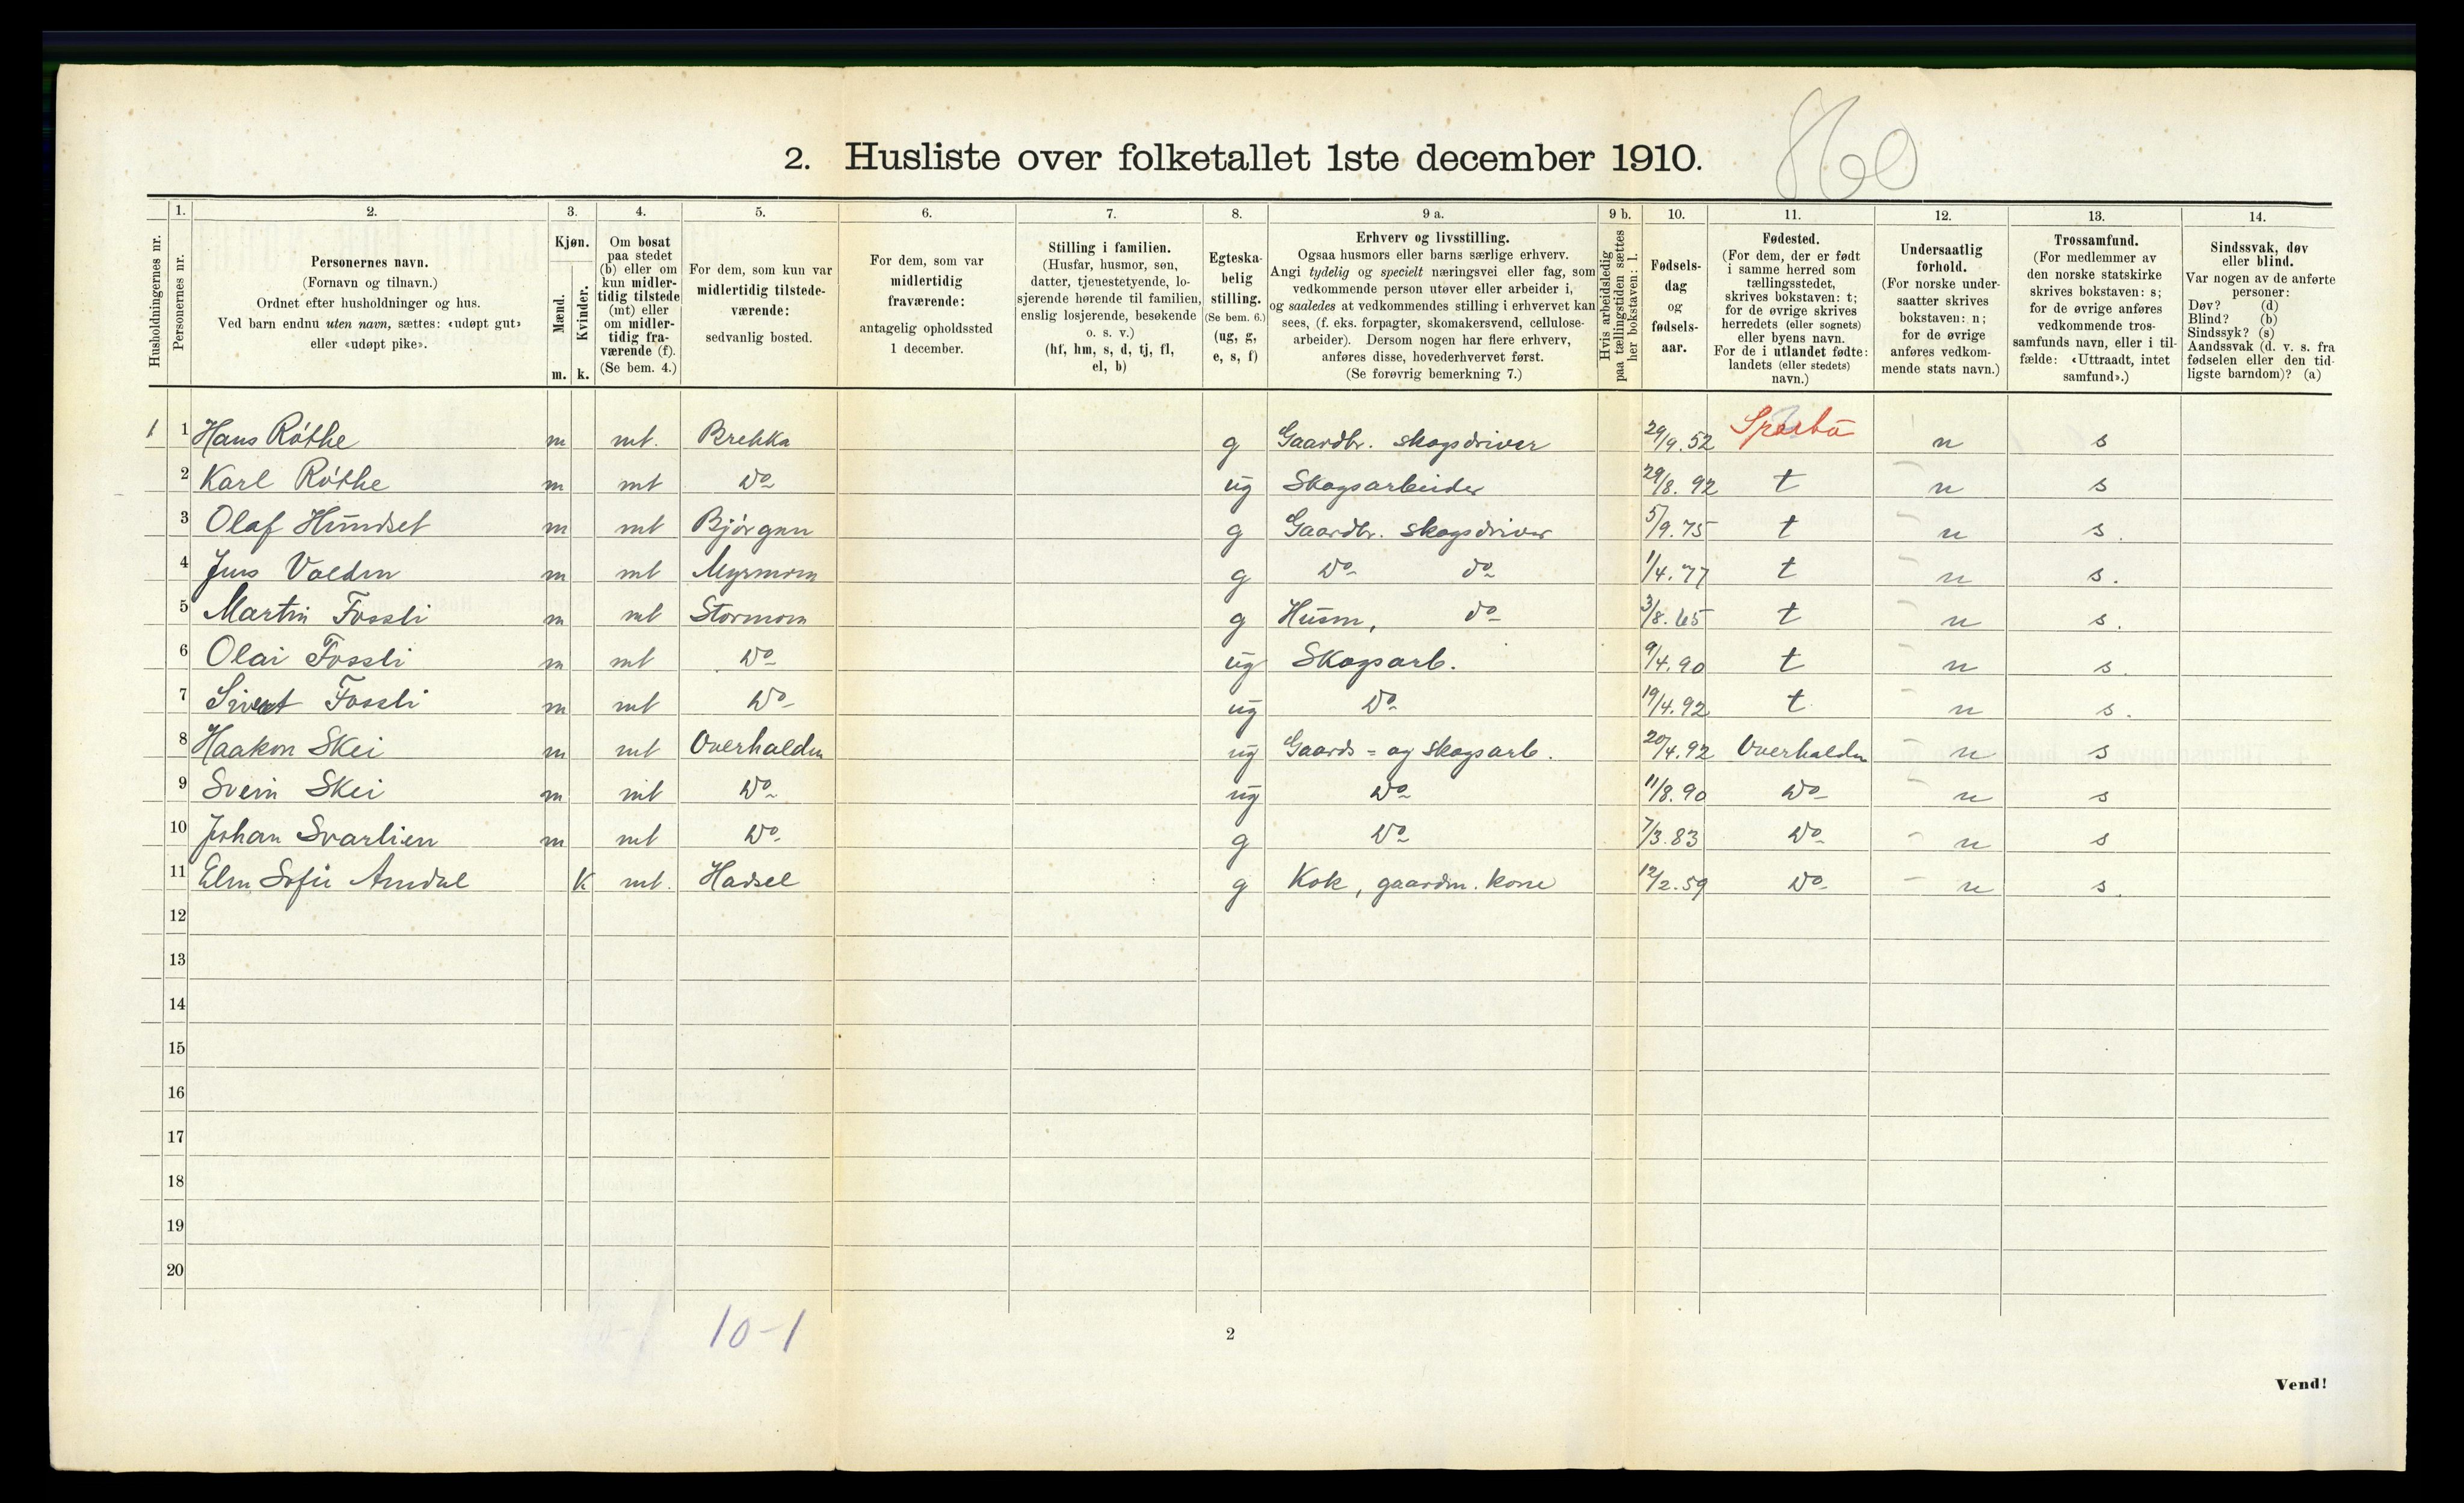 860
2. Husliste over folketallet 1ste december 1910.
Husholdningernes nr.
1.
Personernes nr.
2.
Personernes navn.
(Fornavn og tilnavn.)
Ordnet efter husholdninger og hus.
Ved barn endnu uten navn, sættes: «udøpt gut»
eller «udøpt pike».
3.
Kjøn.
Mænd.
Kvinder.
m. k.
4.
Om bosat
paa stedet
(b) eller om
kun midler-
tidig tilstede
(mt) eller
om midler-
tidig fra-
værende (f).
(Se bem. 4.)
5.
For dem, som kun var
midlertidig tilstede-
værende:
sedvanlig bosted.
6.
For dem, som var
midlertidig
fraværende:
antagelig opholdssted
1 december.
7.
Stilling i familien.
(Husfar, husmor, søn,
datter, tjenestetyende, lo-
sjerende hørende til familien,
enslig losjerende, besøkende
o. s. v.)
(hf, hm, s, d, tj, fl,
el, b)
8.
Egteska-
belig
stilling.
(Se bem. 6.)
(ug, g,
e, s, f)
9 a.
Erhverv og livsstilling.
Ogsaa husmors eller barns særlige erhverv.
Angi tydelig og specielt næringsvei eller fag, som
vedkommende person utøver eller arbeider i,
og saaledes at vedkommendes stilling i erhvervet kan
sees, (f. eks. forpagter, skomakersvend, cellulose-
arbeider). Dersom nogen har flere erhverv,
anføres disse, hovederhvervet først.
(Se forøvrig bemerkning 7.)
9 b.
Hvis arbeidsledig
paa tællingstiden sættes
her bokstaven: l.
10.
Fødsels-
dag
og
fødsels-
aar.
11.
Fødested.
(For dem, der er født
i samme herred som
tællingsstedet,
skrives bokstaven: t;
for de øvrige skrives
herredets (eller sognets)
eller byens navn.
For de i utlandet fødte:
landets (eller stedets)
navn.)
12.
Undersaatlig
forhold.
(For norske under-
saatter skrives
bokstaven: n;
for de øvrige
anføres vedkom-
mende stats navn.)
13.
Trossamfund.
(For medlemmer av
den norske statskirke
skrives bokstaven: s;
for de øvrige anføres
vedkommende tros-
samfunds navn, eller i til-
fælde: «Uttraadt, intet
samfund».)
14.
Sindssvak, døv
eller blind.
Var nogen av de anførte
personer:
Døv? (d)
Blind? (b)
Sindssyk? (s)
Aandssvak (d. v. s. fra
fødselen eller den tid-
ligste barndom)? (a)
1 1 Hans Röthe m mt. Brekka g Gaardbr. skogsdriver 29/9. 52 Sparbu n s
2 Karl Röthe m mt Do ug Skogsarbeider 29/8. 92 t n s
3 Olaf Hundset m mt Bjørgan g Gaardbr. skogsdriver 5/9. 75 t n s.
4 Jens Valdm m mt Myrmom g Do do 1/4. 77 t n s.
5 Martin Fossli m mt Stormom g Husm, do 3/8. 65 t n s.
6 Olai Fossli m mt Do ug Skogsarb. 9/4. 90 t n s.
7 Sivert Fossli m mt Do ug Do 19/4. 92 t n s.
8 Haakon Skei m mt Overhalden ug Gaards= og skogsarb. 20/4. 92 Overhalden n s
9 Svein Skei m mt Do ug Do 11/8. 90 Do n s
10 Johan Svarlien m mt Do g Do 7/3. 83 Do n s
11 Elen Sofie Amdal k mt. Hadsel g Kok, gaardm. kone 12/2. 59 Do n s.
12
13
14
15
16
17
18
19
20
10-1
2
Vend!